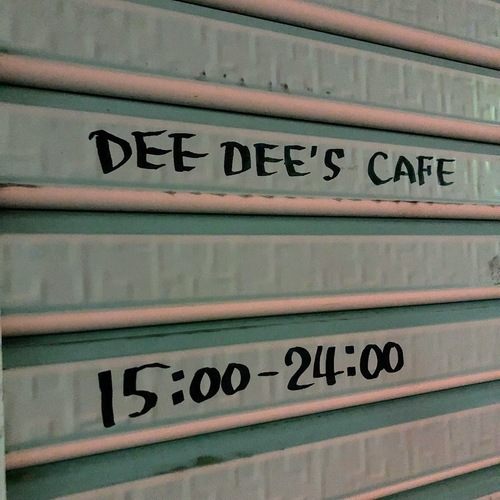 DEE DEE'S CAFE
15:00-24:00